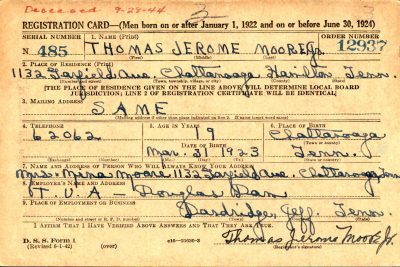 Deceased 9-29-44
3
REGISTRATION CARD—(Men born on or after January 1, 1922 and on or before June 30, 1924)
SERIAL NUMBER 1. NAME (Print) ORDER NUMBER
N 485 THOMAS JEROME MOORE Jr. 12937
(First) (Middle) (Last)
2. PLACE OF RESIDENCE (Print)
1132 Garfield Ave. Chattanooga Hamilton Tenn.
(Number and street) (Town, township, village, or city) (County) (State)
[THE PLACE OF RESIDENCE GIVEN ON THE LINE ABOVE WILL DETERMINE LOCAL BOARD
JURISDICTION; LINE 2 OF REGISTRATION CERTIFICATE WILL BE IDENTICAL]
3. MAILING ADDRESS
SAME
[Mailing address if other than place indicated on line 2. If same insert word same]
4. TELEPHONE 5. AGE IN YEARS 6. PLACE OF BIRTH
62062 19 Chattanooga
DATE OF BIRTH
Mar. 31 1923 Tenn.
7. NAME AND ADDRESS OF PERSON WHO WILL ALWAYS KNOW YOUR ADDRESS
Mrs. Mina Moore 1132 Garfield Ave. Chattanooga Tenn
8. EMPLOYER'S NAME AND ADDRESS
T.V.A - Douglas Dam
9. PLACE OF EMPLOYMENT OR BUSINESS
Dandridge, Jeff. Tenn.
(Number and street or R. F. D. number) (Town) (County) (State)
I AFFIRM THAT I HAVE VERIFIED ABOVE ANSWERS AND THAT THEY ARE TRUE.
D. S. S. Form 1
(Revised 6-1-42) (over) Thomas Jerome Moore Jr.